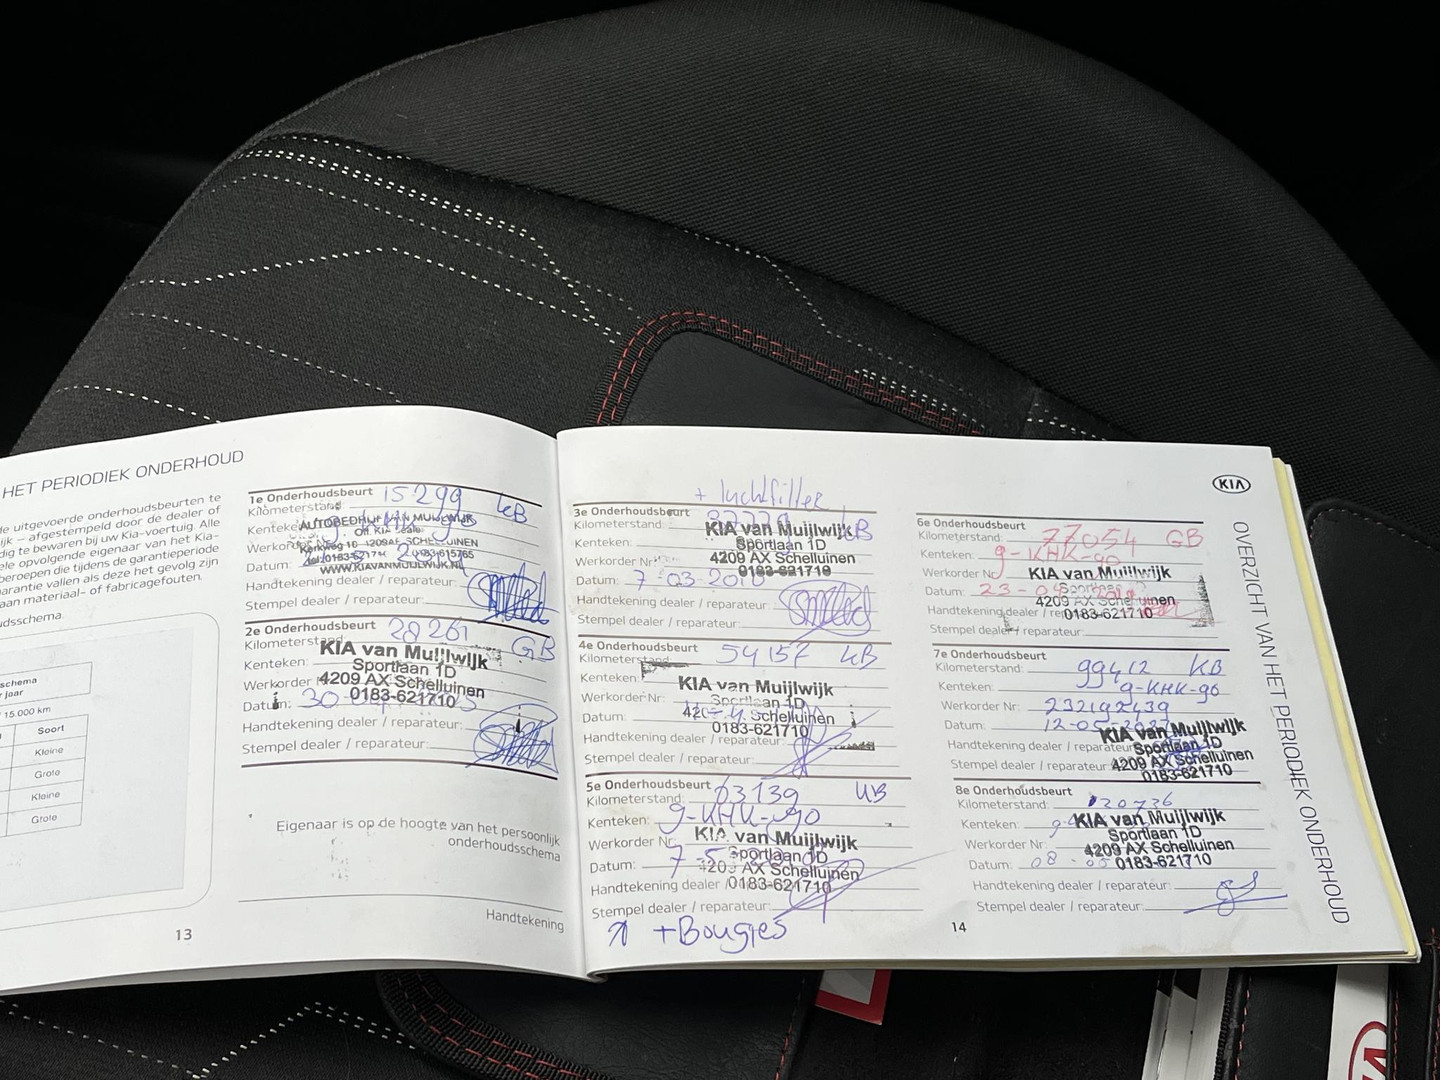 HET PERIODIEK ONDERHOUD
de uitgevoerde onderhoudsbeurten te
lijk – afgestempeld door de dealer of
dig te bewaren bij uw Kia-voertuig. Alle
ele opvolgende eigenaar van het Kia-
beroepen die tijdens de garantieperiode
arantie vallen als deze het gevolg zijn
aan materiaal- of fabricagefouten.
udsschema.
schema
jaar
15.000 km
Soort
Kleine
Grote
Kleine
Grote
1e Onderhoudsbeurt 15299 KB
Kilometerstand:
AUTOBEDRIJF VAN MUIJLWIJK
Off Kia dealer
Kerkweg 10 4209AE SCHELLUINEN
WWW.KIAVANMUIJLWIJK.NL
Datum:
Handtekening dealer / reparateur:
Stempel dealer / reparateur:
2e Onderhoudsbeurt 28261 GB
Kilometerstand:
KIA van Muijlwijk
Kenteken:
Sportlaan 1D
Werkorder
4209 AX Schelluinen
Datum: 30
0183-621710
Handtekening dealer / reparateur:
Stempel dealer / reparateur:
Eigenaar is op de hoogte van het persoonlijk
onderhoudsschema
Handtekening
13
+ luchtfilter
3e Onderhoudsbeurt
Kilometerstand: KB
KIA van Muijlwijk
Kenteken:
Sportlaan 1D
Werkorder Nr:
4209 AX Schelluinen
0183-621710
Datum: 7-03-201
Handtekening dealer / reparateur:
Stempel dealer / reparateur:
4e Onderhoudsbeurt 54157 KB
Kilometerstand:
Kenteken:
KIA van Muijlwijk
Werkorder Nr:
Sportlaan 1D
Datum:
Schelluinen
0183-621710
Handtekening dealer / reparateur:
Stempel dealer / reparateur:
5e Onderhoudsbeurt 63139 KB
Kilometerstand:
Kenteken: 9-KHK-90
Werkorder Nr:
KIA van Muijlwijk
Sportlaan 1D
Datum: 7-5
4209 AX Schelluinen
Handtekening dealer
0183-621710
Stempel dealer / reparateur:
+Bougies
KIA
6e Onderhoudsbeurt
Kilometerstand: 77054 GB
Kenteken: 9-KHK-90
Werkorder Nr:
KIA van Muijlwijk
Datum: 23-
4209 AX Schelluinen
Handtekening dealer
0183-621710
Stempel dealer / reparateur:
7e Onderhoudsbeurt
Kilometerstand: 99412 KB
Kenteken: 9-KHK-90
Werkorder Nr: 232192439
Datum: 12-05-202
KIA van Muijlwijk
Handtekening dealer / reparateur
Sportlaan 1D
Stempel dealer / reparateur
4209 AX Schelluinen
0183-621710
8e Onderhoudsbeurt
Kilometerstand: 120736
Kenteken: 9-
KIA van Muijlwijk
Sportlaan 1D
Werkorder Nr:
4209 AX Schelluinen
Datum: 08-05
0183-621710
Handtekening dealer / reparateur:
Stempel dealer / reparateur:
14
OVERZICHT VAN HET PERIODIEK ONDERHOUD